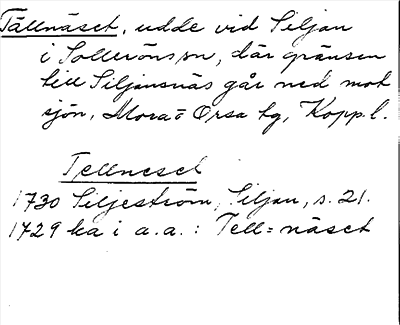 Tällnäset, udde vid Siljan
i Solleröns sn, där gränsen
till Siljansnäs går ned mot
sjön, Mora o Orsa tg, Kopp. l.
Tellneset
1730 Siljeström, Siljan, s. 21.
1729 ka i a.a. : Tell=näset